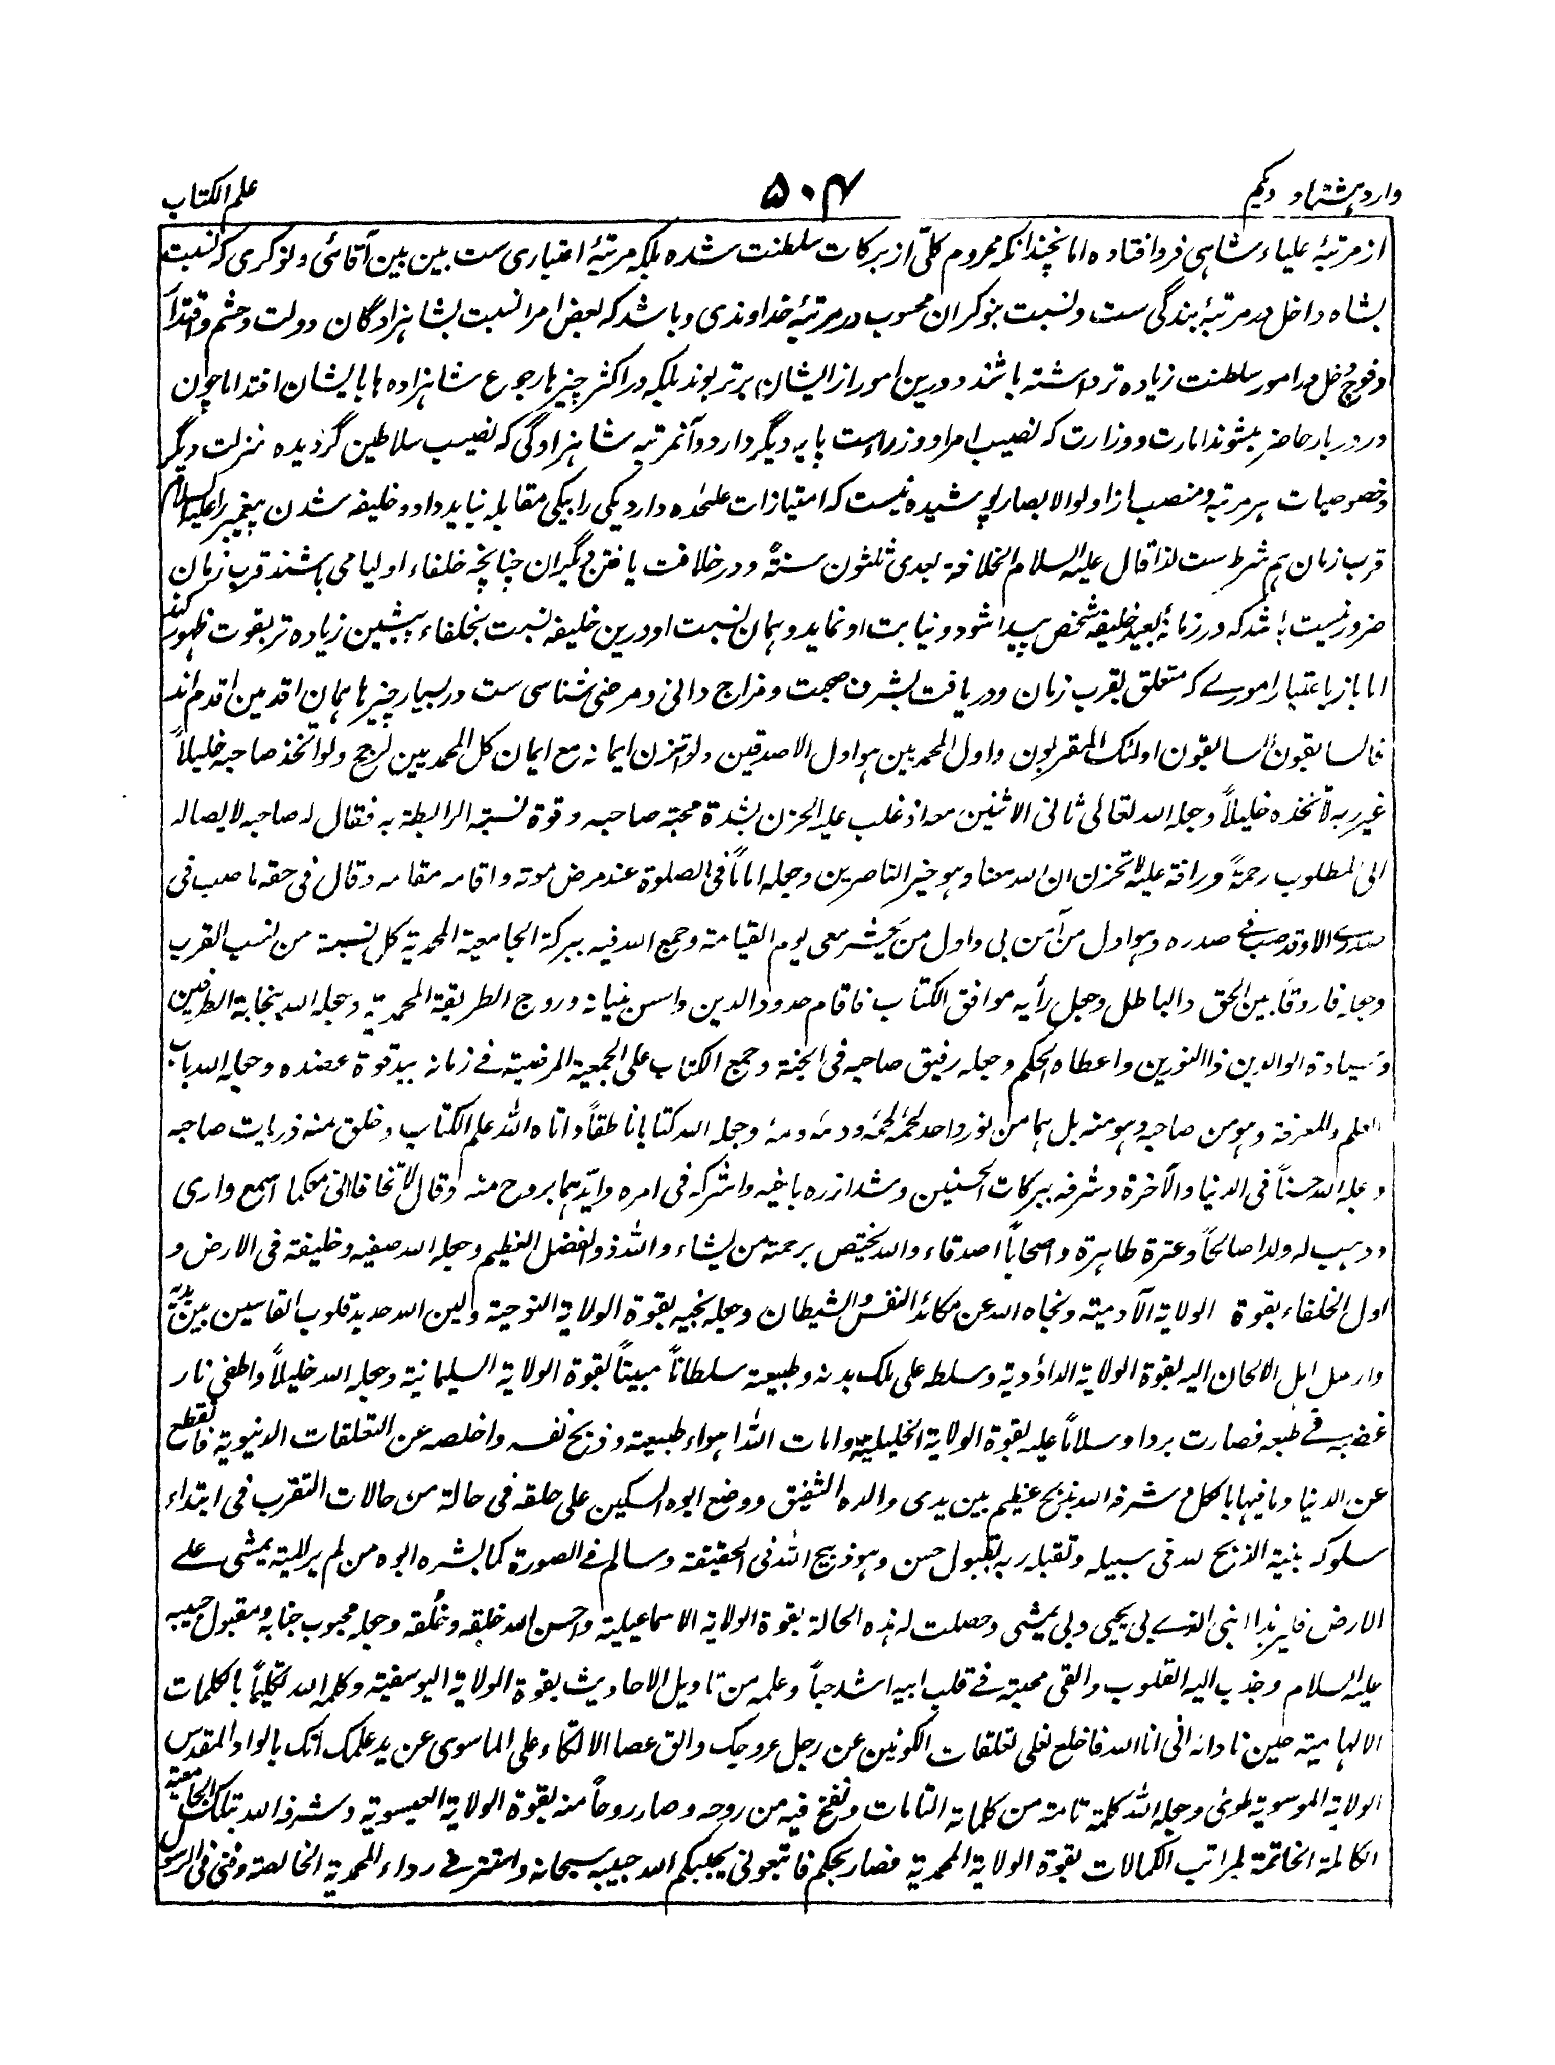 وارد ہشتاد ویکم
۵۰۴
علم الکتاب
از مرتبۂ علیاء شاہی فرو افتادہ اما نچندانکہ محروم کلّی از برکات سلطنت شدہ بلکہ مرتبۂ اعتباری ست بین بین آقائی و نوکری کہ نسبت
بشاہ داخل در مرتبۂ بندگی ست و نسبت بنوکران محسوب در مرتبۂ خداوندی و باشد کہ بعض امرا نسبت بشاہزادگان دولت و حشم و اقتدار
و فوج و دخل در امور سلطنت زیادہ تر داشتہ باشند و درین امور از ایشان برتر بوند بلکہ در اکثر چیزہا رجوع شاہزادہ ہا بایشان افتد اما چون
در دربار حاضر میشوند امارت و وزارت کہ نصیب امرا و وزراست پایہ دیگر دارد و آنمرتبہ شاہزادگی کہ نصیب سلاطین گردیدہ منزلت دیگر
و خصوصیات ہر مرتبہ و منصب از اولوالابصار پوشیدہ نیست کہ امتیازات علٰحدہ دارد یکی را بیکی مقابلہ نباید داد و خلیفہ شدن پیغمبر را علیہ السلام
قرب زمان ہم شرط ست لذا قال علیہ السلام الخلافۃ بعدی ثلثون سنۃ و در خلافت یافتن دیگران چنانچہ خلفاء اولیا می باشند قرب زمان
ضرور نیست باشد کہ در زمانۂ بعید خلیفہ شخص پیدا شود و نیابت او نماید و ہمان نسبت او درین خلیفہ نسبت بخلفاء پیشین زیادہ تر بقوت ظہور کند
اما باز باعتبار امورے کہ متعلق بقرب زمان و دریافت بشرف صحبت و مزاج دانی و مرضی شناسی ست در بسیار چیزہا ہمان اقدمین اقدم اند
فالسابقون السابقون اولئک المقربون و اول المحمدیین ہو اول الاصدقین و لو اتزن ایمانہ مع ایمان کل المحمدیین لرجح ولو اتخذ صاحبہ خلیلاً
غیر ربہ لاتخذہ خلیلاً و جعلہ اللہ تعالی ثانی الاثنین معہ اذ غلب علیہ الحزن بشدۃ محبۃ صاحبہ و قوۃ نسبۃ الرابطۃ بہ فقال لہ صاحبہ لایصالہ
الی المطلوب رحمۃً و رافۃ علیہ لاتحزن ان اللہ معنا و ہو خیر الناصرین و جعلہ اماماً فی الصلوۃ عند مرض موتہ و اقامہ مقامہ و قال فی حقہ ما صب فی
صدرے الا و قد صب فے صدرہ و ہو اول من آمن بی و اول من یحشر معی یوم القیامۃ و جمع اللہ فیہ ببرکۃ الجامعیۃ المحمدیۃ کل نسبۃ من نسب القرب
وجعلہ فاروقاً بین الحق والباطل وجعل رأیہ موافق الکتاب فاقام حدود الدین واسس بنیانہ وروج الطریقۃ المحمدیۃ وجعلہ اللہ بنجابۃ الطرفین
وسیادۃ الوالدین ذا النورین واعطاہ الحکم وجعلہ رفیق صاحبہ فی الجنۃ وجمع الکتاب علی الجمعیۃ المرضیۃ فے زمانہ بید قوۃ عضدہ وجعلہ اللہ باب
العلم والمعرفۃ وہو من صاحبہ وہو منہ بل ہما من نور واحد لحمہٗ لحمہٗ ودمہٗ دمہٗ وجعلہ اللہ کتابا ناطقاً واتاہ اللہ علم الکتاب وخلق منہ ذریات صاحبہ
وجعلہ اللہ حسناً فی الدنیا والآخرۃ وشرفہ ببرکات الحسنین وشد ازرہ باخیہ واشرکہ فی امرہ وایّدہما بروح منہ وقال لاتخافا اننی معکما اسمع واری
ووہب لہ ولدا صالحاً وعترۃ طاہرۃ واصحاباً اصدقاء واللہ یختص برحمتہ من یشاء واللہ ذوالفضل العظیم وجعلہ اللہ صفیہ وخلیفۃ فی الارض و
اول الخلفاء بقوۃ الولایۃ الآدمیۃ ونجاہ اللہ عن مکائد النفس والشیطان وجعلہ نجیہ بقوۃ الولایۃ النوحیۃ ولین اللہ حدید قلوب القاسین بین یدیہ
وارسل اہل الالحان الیہ بقوۃ الولایۃ الداؤدیۃ وسلطہ علی ملک بدنہ وطبیعتہ سلطاناً مبیناً بقوۃ الولایۃ السلیمانیۃ وجعلہ اللہ خلیلاً واطفی نار
غضبہ فے طبعہ فصارت بردا وسلاماً علیہ بقوۃ الولایۃ الخلیلیۃ وامات اللہ اہواء طبیعتہ وذبح نفسہ واخلصہ عن التعلقات الدنیویۃ فانقطع
عن الدنیا ومافیہا بالکل وشرفہ اللہ بذبح عظیم بین یدی والدہ الشفیق ووضع ابوہ السکین علی حلقہ فی حالۃ من حالات التقرب فی ابتداء
سلوکہ بنیۃ الذبح للہ فی سبیلہ وتقبلہ ربہ بقبول حسن وہو ذبیح اللہ فی الحقیقۃ وسالم فے الصورۃ کما بشرہ ابوہ من لم یر المیت یمشی علے
الارض فلیر ہذا ابنی الذے بی یحیی وبی یمشی وحصلت لہ ہذہ الحالۃ بقوۃ الولایۃ الاسماعیلیۃ واحسن اللہ خلقہ وخُلقہ وجعلہ محبوب جنابہ ومقبول حبیبہ
علیہ السلام وجذب الیہ القلوب والقی محبتہ فے قلب ابیہ اشد حباً وعلمہ من تاویل الاحادیث بقوۃ الولایۃ الیوسفیۃ وکلمہ اللہ تکلیماً بالکلمات
الالہامیۃ حین ناداہ انی انا اللہ فاخلع نعلی تعلقات الکونین عن رجل عروجک والق عصا الاتکاء علی الماسوی عن ید علمک انک بالواد المقدس
الولایۃ الموسویۃ طویٰ وجعلہ اللہ کلمۃ تامۃ من کلماتہ التامات ونفخ فیہ من روحہ وصار روحاً منہ بقوۃ الولایۃ العیسویۃ وشرفہ اللہ بتلک الجامعیۃ
الکاملۃ الخاتمۃ لمراتب الکمالات بقوۃ الولایۃ المحمدیۃ فصار بحکم فاتبعونی یحببکم اللہ حبیبہ سبحانہ واستتر فے رداء المحمدیۃ الخالصۃ وفنی فی الرسول